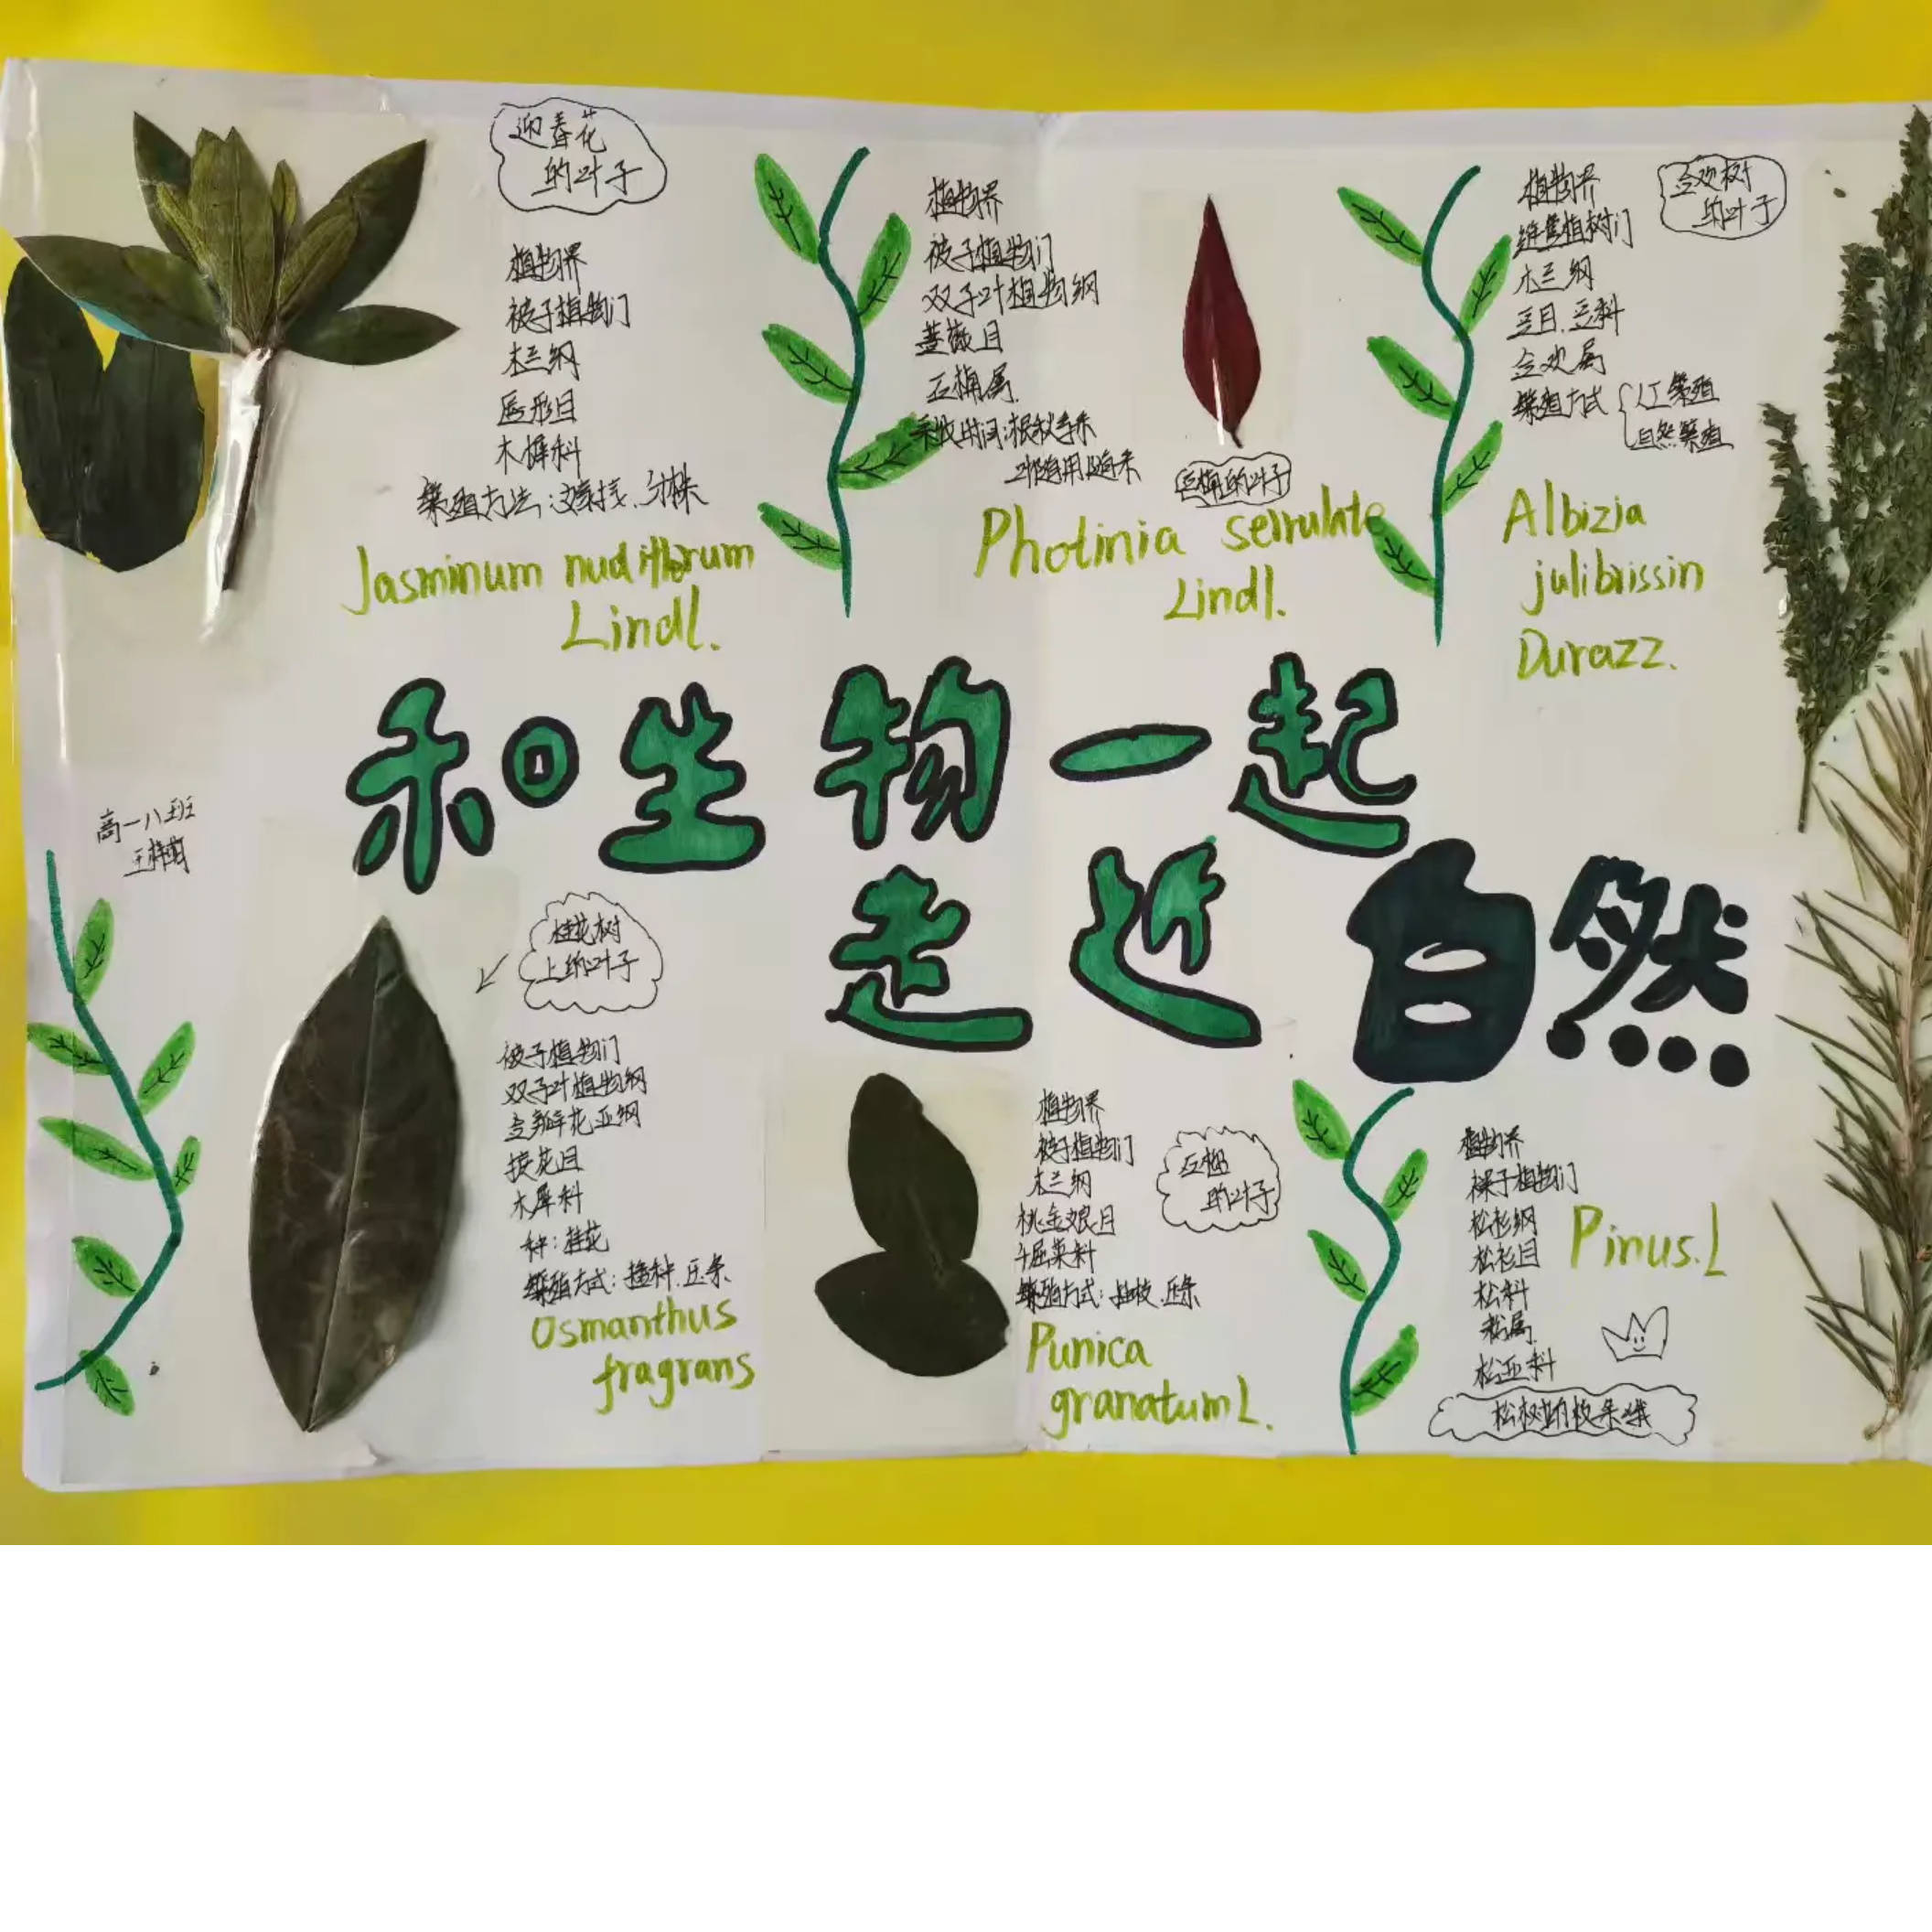 迎春花
的叶子
植物界
被子植物门
木兰纲
唇形目
木樨科
繁殖方法：嫁接、分株
Jasminum nudiflorum
Lindl.
植物界
被子植物门
双子叶植物纲
蔷薇目
石楠属
采收时间：根秋季采
叶随用随采
石楠的叶子
Photinia serrulate
Lindl.
合欢树
的叶子
植物界
木兰纲
豆目、豆科
合欢属
繁殖方式 人工繁殖
自然繁殖
Albizia
julibrissin
Durazz.
和生物一起
走近自然
高一八班
桂花树
上的叶子
被子植物门
双子叶植物纲
合瓣花亚纲
捩花目
木犀科
种：桂花
繁殖方式：播种、压条
Osmanthus
fragrans
植物界
被子植物门
木兰纲
桃金娘目
千屈菜科
繁殖方式：扦插、压条
的叶子
Punica
granatum L.
植物界
裸子植物门
松杉纲
松杉目
松科
松属
松亚科
Pinus.L
松树的枝条哦